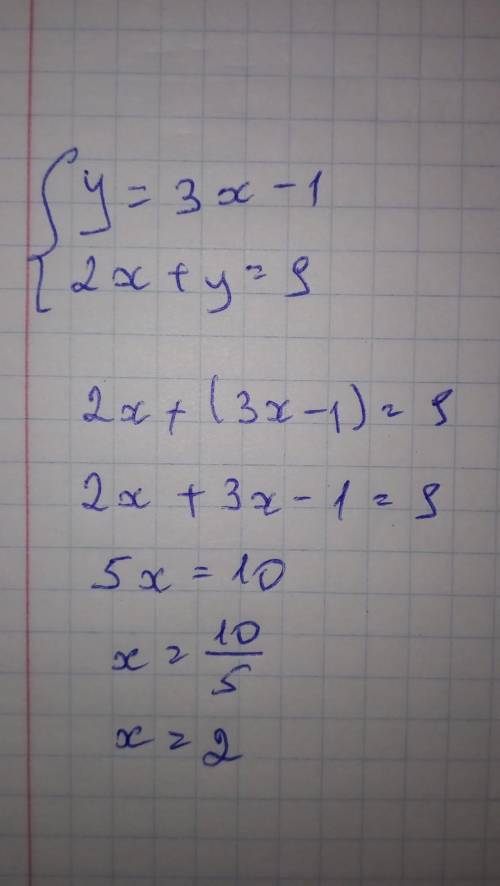 { y = 3x - 1
2x + y = 9
2x + (3x - 1) = 9
2x + 3x - 1 = 9
5x = 10
x = 10/5
x = 2